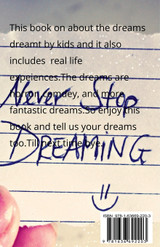 This book on about the dreams
dreamt by kids and it also
includes real life
expeiences.The dreams are
horror, comdey, and more
fantastic dreams.So enjoy this
book and tell us your dreams
too.Till next time bye.
Never Stop
DREAMING